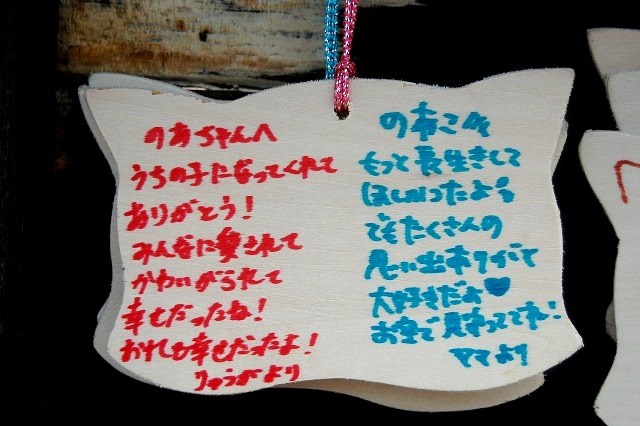 のあちゃんへ
うちの子になってくれて
ありがとう!
みんなに愛されて
かわいがられて
幸せだったね!
おれも幸せだったよ!
りゅうがより
もっと長生きして
ほしかったよぅ
でもたくさんの
思い出ありがと
大好きだよ♥
お空で見守っててね!
ママより